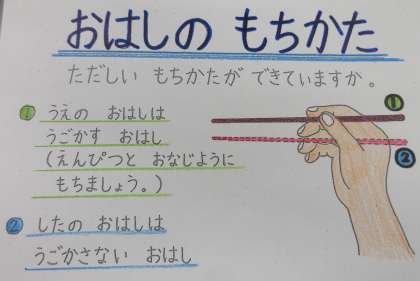 おはしの もちかた
ただしい もちかたが できていますか。
① うえの おはしは
うごかす おはし
(えんぴつと おなじように
もちましょう。)
② したの おはしは
うごかさない おはし
①
②